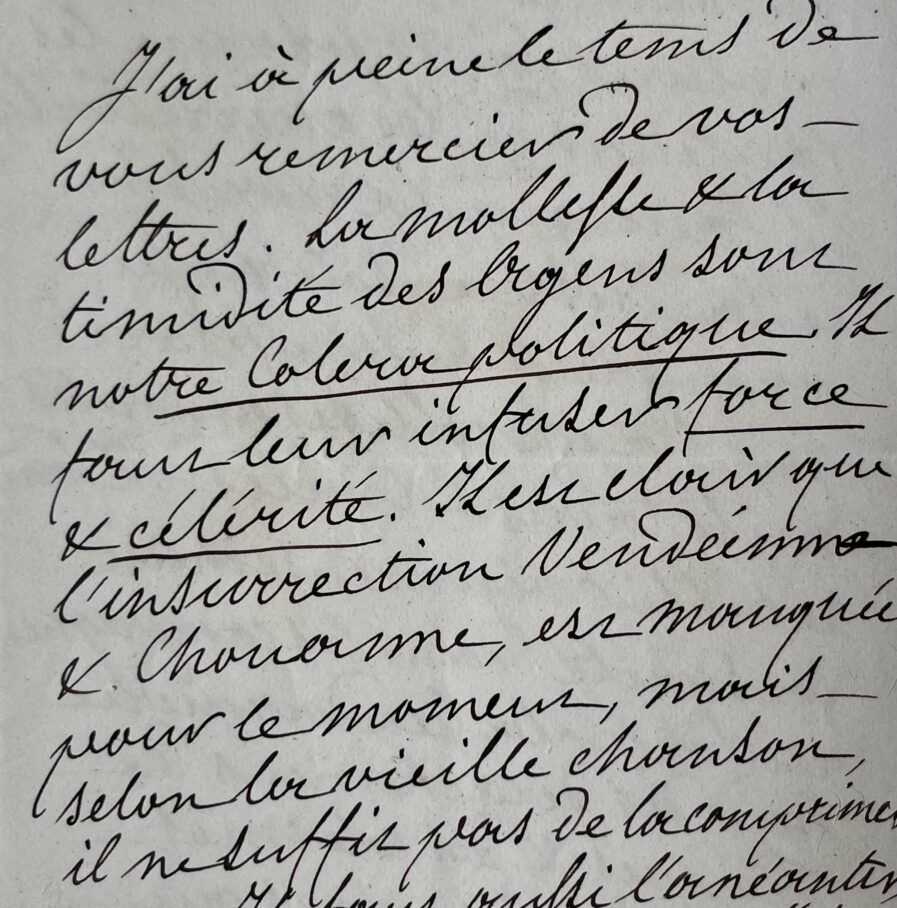 J'ai à peine le tems de
vous remercier de vos
lettres. La mollesse & la
timidité des Agens sont
notre Colera politique. Il
faut leur infuser force
& célérité. Il est clair que
l'insurrection Vendéenne
& Chouanne, est manquée
pour le moment, mais
selon la vieille chanson,
il ne suffit pas de la comprimer
Il faut aussi l'anéantir